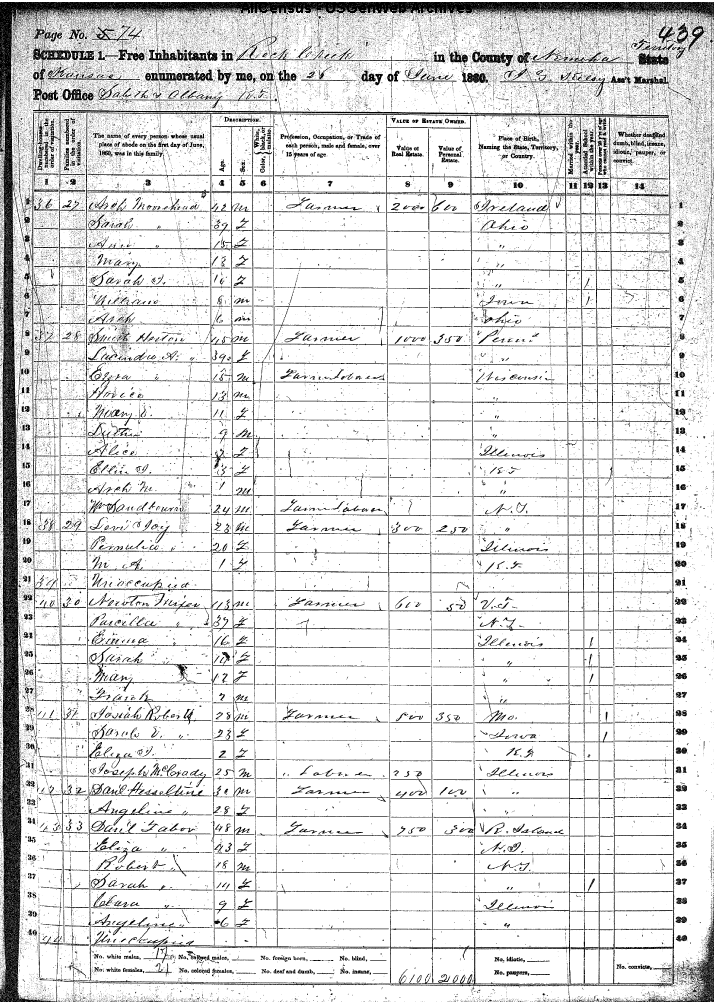 AllCensus - USGenWeb Archives
Page No. 74
439
SCHEDULE 1.—Free Inhabitants in Rock Creek in the County of Nemeha State Territory
of Kansas enumerated by me, on the 26 day of June 1860. Ass't Marshal
Post Office Sabetha & Albany K.T.
Dwelling-houses numbered in the order of visitation. Families numbered in the order of visitation. The name of every person whose usual place of abode on the first day of June, 1860, was in this family. DESCRIPTION. Age. Sex. Color, White, black, or mulatto. Profession, Occupation, or Trade of each person, male and female, over 15 years of age. VALUE OF ESTATE OWNED. Value of Real Estate. Value of Personal Estate. Place of Birth, Naming the State, Territory, or Country. Married within the year. Attended School within the year. Persons over 20 y'rs of age who cannot read & write. Whether deaf and dumb, blind, insane, idiotic, pauper, or convict.
1 2 3 4 5 6 7 8 9 10 11 12 13 14
1 36 27 Arch Moorehead 42 m Farmer 2000 600 Ireland 1
2 Sarah " 39 F Ohio 2
3 Ann " 15 F " 3
4 Mary 13 F " 4
5 Sarah J. 10 F " / 5
6 8 m Iowa / 6
7 Arch 6 m Ohio 7
8 37 28 Horton 45 m Farmer 1000 350 Penn 8
9 Lucinda A. " 39 F " 9
10 Ezra " 15 m Farm Laborer Wisconsin 10
11 13 m " 11
12 Mary E. 11 F " 12
13 9 m " 13
14 Alice F Illinois 14
15 Ellen J. 3 F K.T. 15
16 Arch M. 1 m " 16
17 Wm Sandbourn 24 m Farm Laborer N.Y. 17
18 38 29 Levi Joy 23 m Farmer 300 250 " 18
19 Permelia " 20 F Illinois 19
20 M. A. 1 F K.T. 20
21 39 Unoccupied 21
22 40 30 Newton 43 m Farmer 600 50 V.T. 22
23 Parcilla " 37 F N.Y. 23
24 Emma " 16 F Illinois / 24
25 Sarah " F " / 25
26 Mary 12 F " / 26
27 Frank 7 m " 27
28 41 31 Josiah Roberts 28 m Farmer 500 350 Mo. / 28
29 Sarah E. " 23 F Iowa / 29
30 Eliza J. 2 F K.T. 30
31 Joseph McCrady 25 m " Laborer 250 Illinois 31
32 42 32 Danl Hesseltine 30 m Farmer 400 100 " 32
33 Angeline " 28 F " 33
34 43 33 Danl Tabor 48 m Farmer 750 300 R. Island 34
35 Eliza " 43 F N.Y. 35
36 Robert " 18 m N.Y. 36
37 Sarah " 14 F " / 37
38 Clara " 9 F Illinois 38
39 Angeline " 6 F " 39
40 44 Unoccupied 40
No. white males, 17 No. colored males, No. foreign born, No. blind, No. idiotic,
No. white females, 21 No. colored females, No. deaf and dumb, No. insane, 6100 2000 No. paupers, No. convicts,